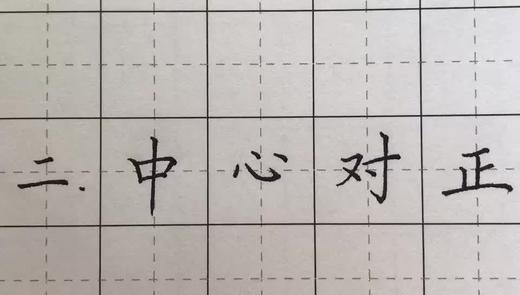 二.中心对正